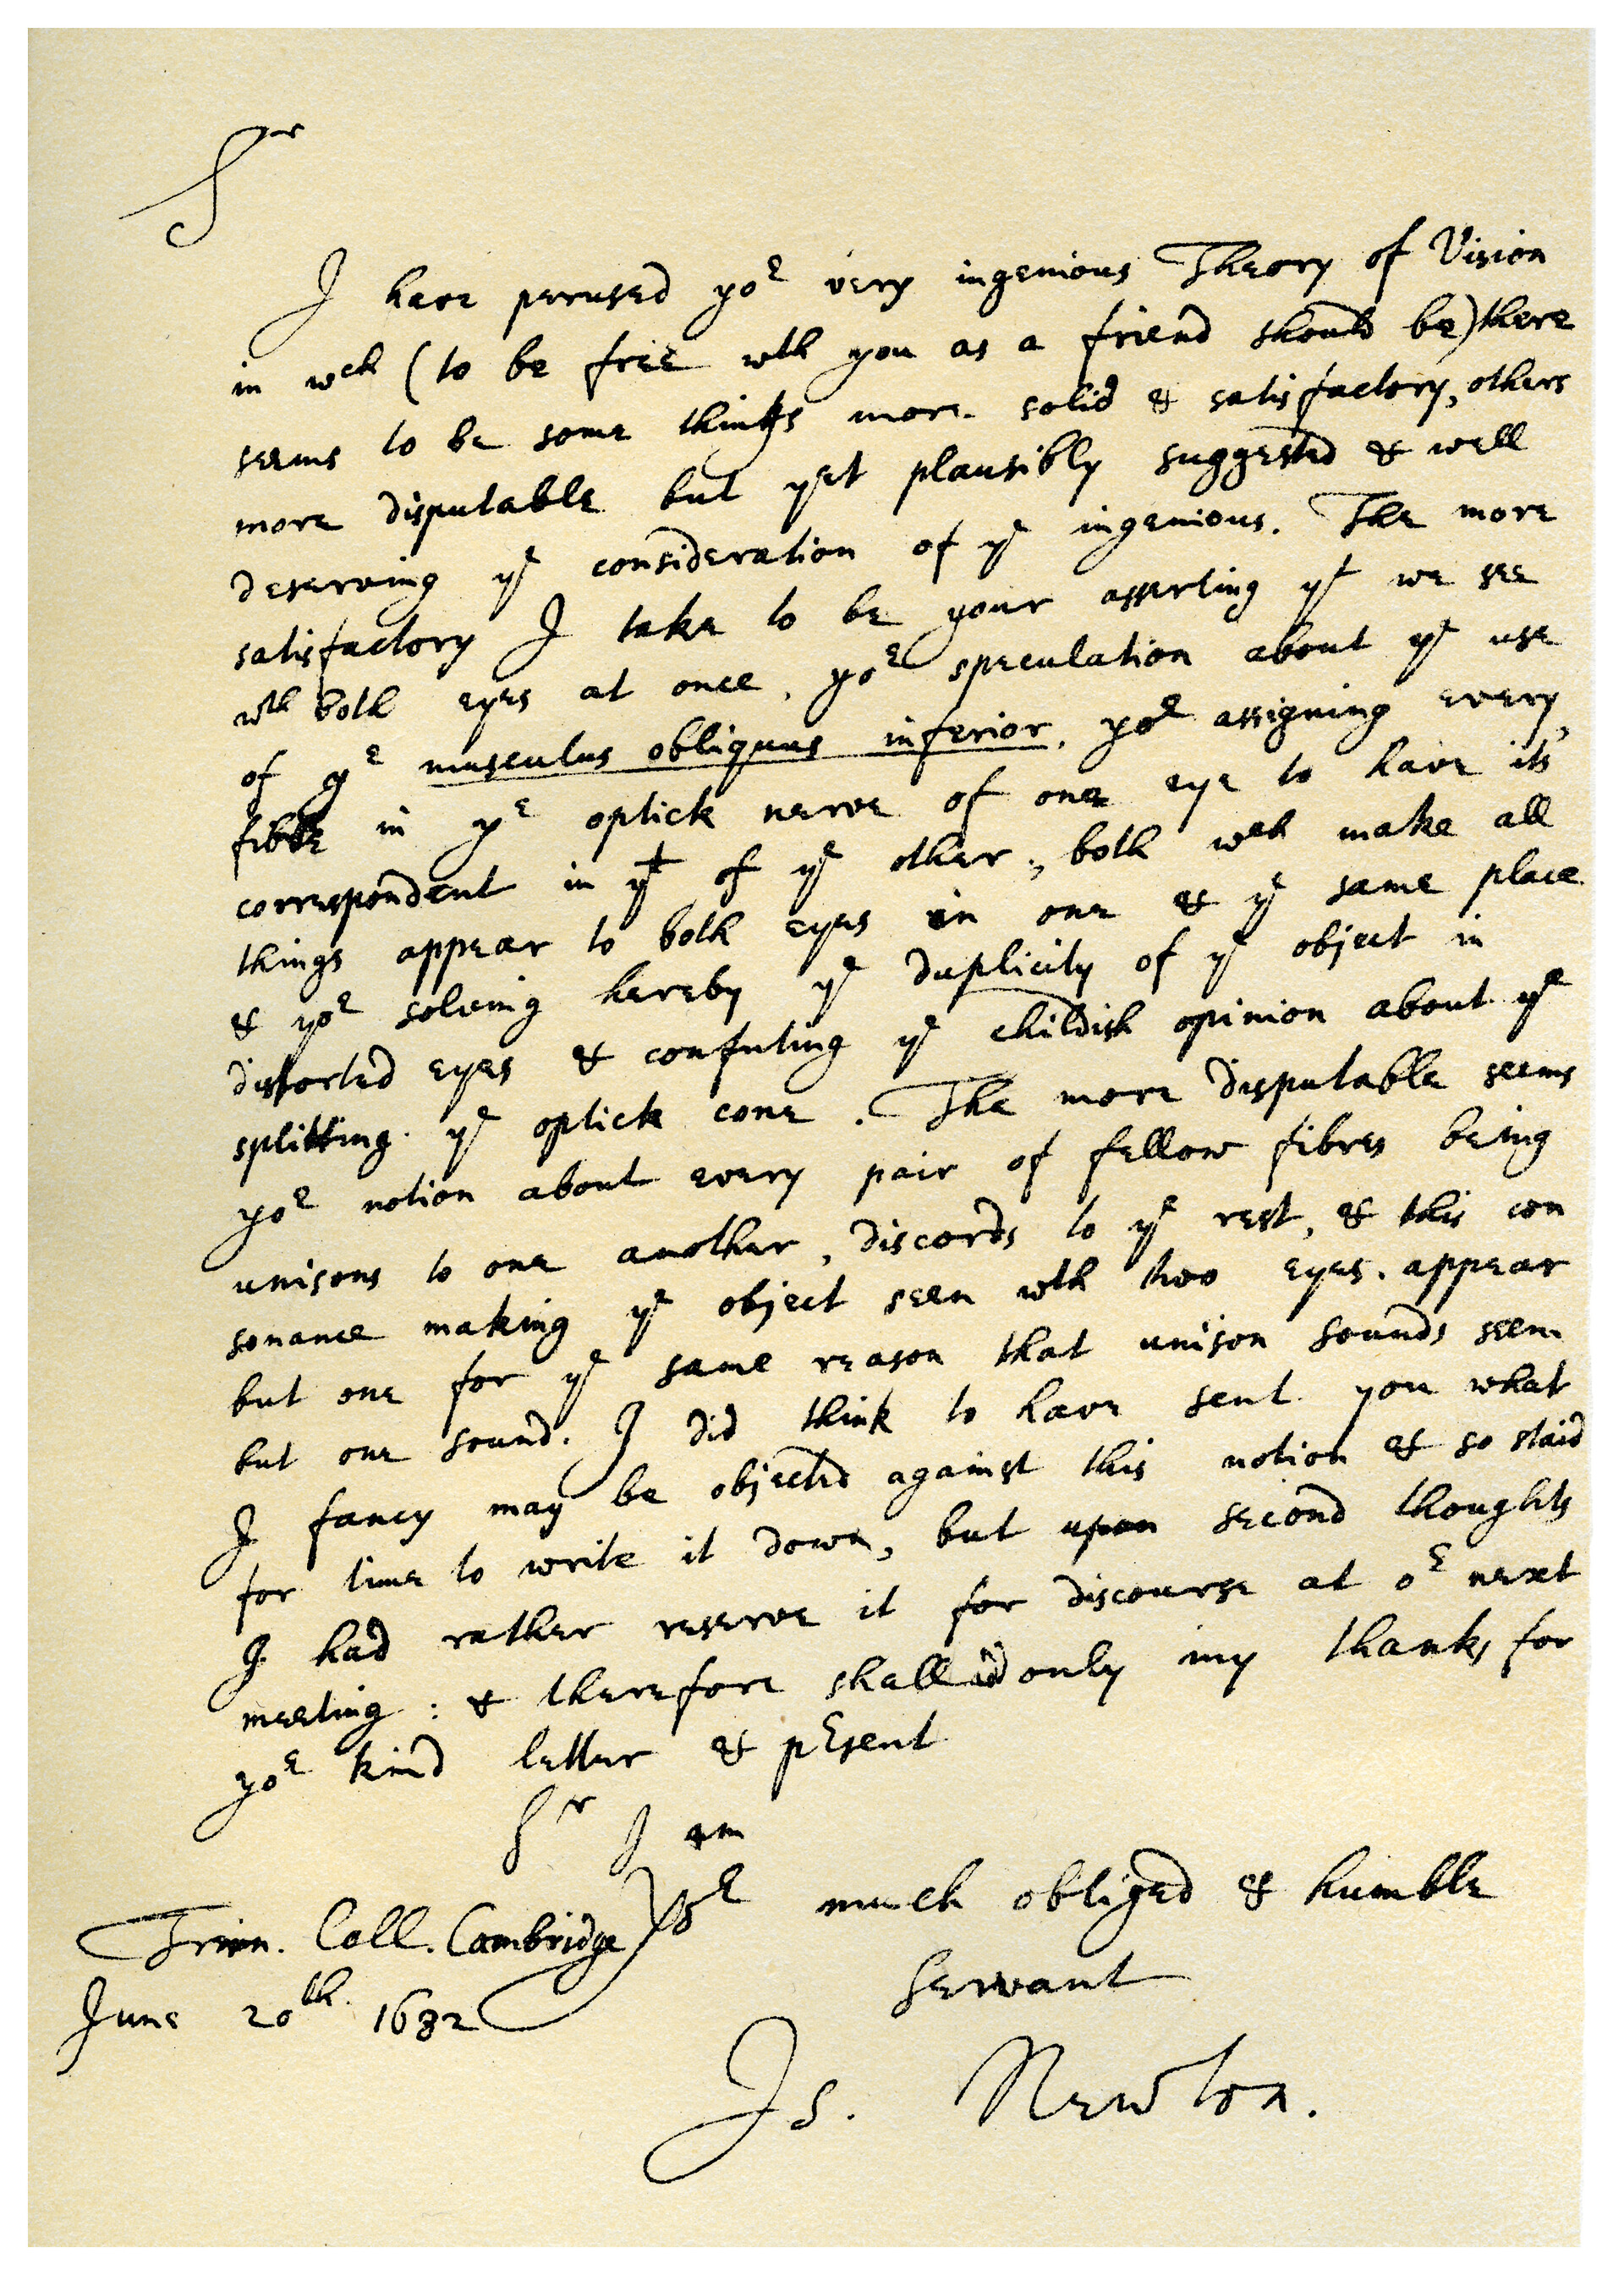 Sr
I have perused yor very ingenious Theory of Vision
in wch (to be free wth you as a friend should be) there
seems to be some things more solid & satisfactory, others
more disputable but yet plausibly suggested & well
deserving ye consideration of ye ingenious. The more
satisfactory I take to be your asserting yt we see
wth both eyes at once, yor speculation about ye use
of ye musculus obliquus inferior, yor assigning every
fibre in ye optick nerve of one eye to have its
correspondent in yt of ye other, both wch make all
things appear to both eyes in one & ye same place
& yor solving hereby ye duplicity of ye object in
distorted eyes & confuting ye childish opinion about ye
splitting ye optick cone. The more disputable seems
yor notion about every pair of fellow fibres being
unisons to one another, discords to ye rest, & this con
sonance making ye object seen wth two eyes appear
but one for ye same reason that unison sounds seem
but one sound. I did think to have sent you what
I fancy may be objected against this notion & so staid
for time to write it down, but upon second thoughts
I had rather reserve it for discourse at or next
meeting: & therefore shall add only my thanks for
yor kind letter & present
Sr I am
Yor much obliged & humble
Servant
Trin. Coll. Cambridge
June 20th 1682
Is. Newton.